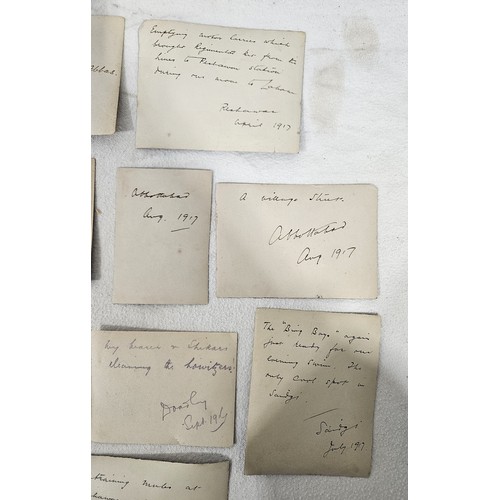 Emptying motor lorries which
brought Regimental kit from the
lines to Peshawar Station
during our move to
Peshawar
April 1917
Abbottabad
Aug. 1917
A village Street.
Abbottabad
Aug 1917
My bearer & Shikari
cleaning the howitzers
Sept 191
The "Bing Boys" again
just ready for our
evening swim. The
only cool spot in
Saidgi
Saidgi
July 1917
training mules at